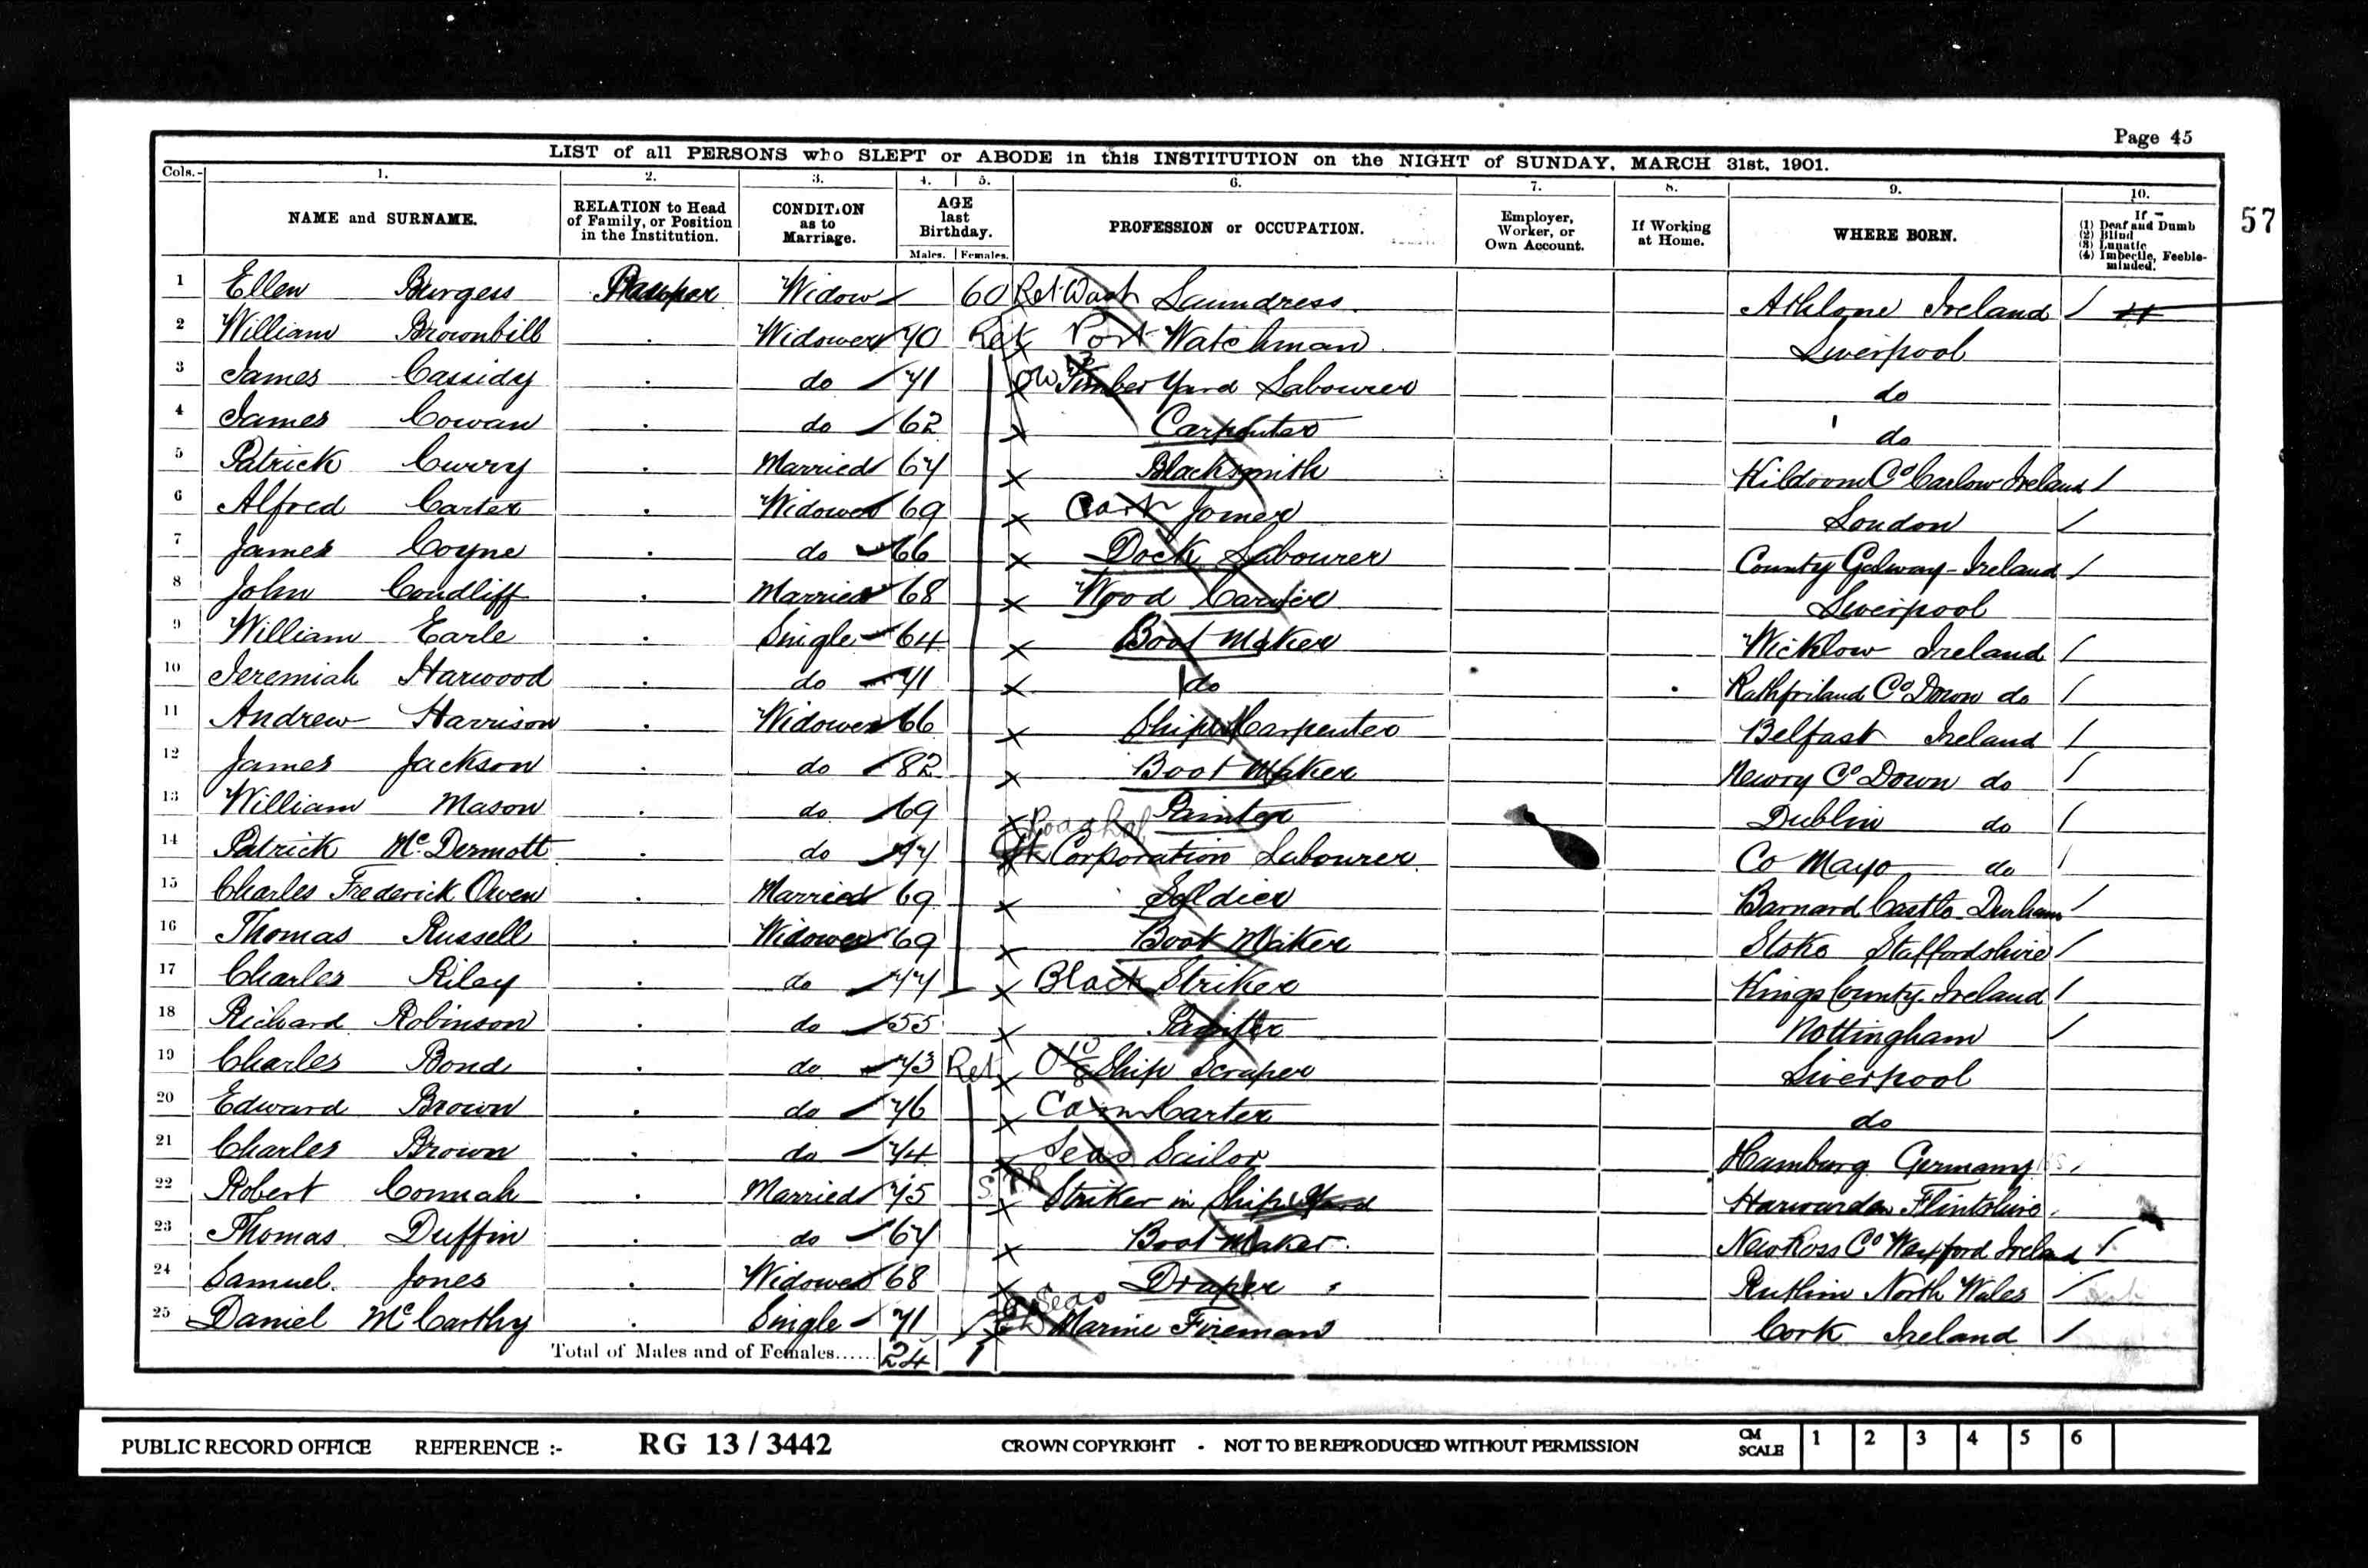 Page 45
LIST of all PERSONS who SLEPT or ABODE in this INSTITUTION on the NIGHT of SUNDAY, MARCH 31st, 1901.
Cols.- 1. 2. 3. 4. 5. 6. 7. 8. 9. 10.
NAME and SURNAME. RELATION to Head of Family, or Position in the Institution. CONDITION as to Marriage. AGE last Birthday. Males. Females. PROFESSION or OCCUPATION. Employer, Worker, or Own Account. If Working at Home. WHERE BORN. If- (1) Deaf and Dumb (2) Blind (3) Lunatic (4) Imbecile, Feeble-minded.
57
1 Ellen Burgess Pauper Widow 60 Ret Wash Laundress Athlone Ireland
2 William Brownbill Widower 70 Ret Port Watchman Liverpool
3 James Cassidy do 71 Timber Yard Labourer do
4 James Cowan do 62 Carpenter do
5 Patrick Curry Married 67 Blacksmith Kildoom Co Carlow Ireland
6 Alfred Carter Widower 69 Joiner London
7 James Coyne do 66 Dock Labourer County Galway Ireland
8 John Cundliff Married 68 Wood Carver Liverpool
9 William Earle Single 64 Boot Maker Wicklow Ireland
10 Jeremiah Harwood do 71 do Rathfriland Co Down do
11 Andrew Harrison Widower 66 Ship Carpenter Belfast Ireland
12 James Jackson do 82 Boot Maker Newry Co Down do
13 William Mason do 69 Painter Dublin do
14 Patrick McDermott do 77 Corporation Labourer Co Mayo do
15 Charles Frederick Owen Married 69 Soldier Barnard Castle Durham
16 Thomas Russell Widower 69 Boot Maker Stoke Staffordshire
17 Charles Riley do 77 Black Striker Kings County Ireland
18 Richard Robinson do 55 Painter Nottingham
19 Charles Bond do 73 Ret Ship Scraper Liverpool
20 Edward Brown do 76 Carter do
21 Charles Brown do 74 Seas Sailor Hamburg Germany
22 Robert Connah Married 75 Striker in Ship Yard Harwarden Flintshire
23 Thomas Duffin do 67 Boot Maker New Ross Co Wexford Ireland
24 Samuel Jones Widower 68 Draper Ruthin North Wales
25 Daniel McCarthy Single 71 Seas Marine Fireman Cork Ireland
Total of Males and of Females...... 24 1
PUBLIC RECORD OFFICE REFERENCE :- RG 13 / 3442 CROWN COPYRIGHT - NOT TO BE REPRODUCED WITHOUT PERMISSION CM SCALE 1 2 3 4 5 6